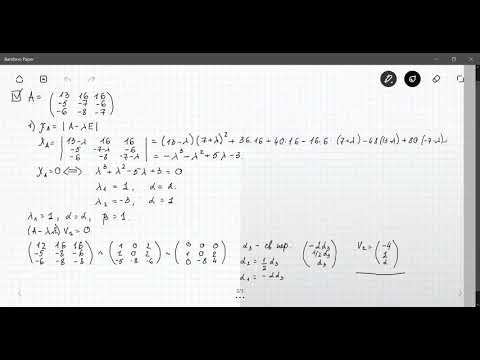 Bamboo Paper
A = ( 13 16 16
-5 -7 -6
-6 -8 -7 )
1) χ_A = |A - λE|
χ_A = | 13-λ 16 16
-5 -7-λ -6
-6 -8 -7-λ | = (13-λ)(7+λ)² + 36·16 + 40·16 - 16·6·(7+λ) - 48(13-λ) + 80(-7-λ)
= -λ³ - λ² + 5λ - 3
χ_A = 0 <=> λ³ + λ² - 5λ + 3 = 0
λ₁ = 1, α = 2.
λ₂ = -3, α = 1
λ₁ = 1, α = 2, β = 1.
(A - λE) V₂ = 0
( 12 16 16
-5 -8 -6
-6 -8 -8 ) ~ ( 1 0 2
1 0 2
-5 -8 -6 ) ~ ( 0 0 0
1 0 2
0 -8 4 )
α₃ - св пер.
α₂ = 1/2 α₃
α₁ = -2α₃
( -2α₃
1/2 α₃
α₃ )
V₂ = ( -4
1
2 )